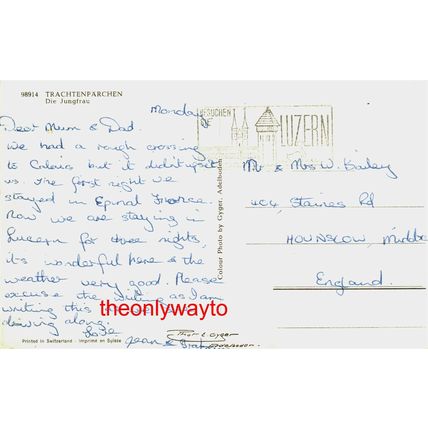 98914 TRACHTENPÄRCHEN
Die Jungfrau
Monday
Dear Mum & Dad.
We had a rough crossing
to Calais but it didn't upset
us. The first night we
stayed in Epinal France.
Now we are staying in
Lucern for three nights,
it's wonderful here & the
weather very good. Please
excuse the writing as I am
writing this as we are
driving along.
Love
Jean &
Printed in Switzerland - Imprimé en Suisse
Colour Photo by Gyger, Adelboden
BESUCHEN
LUZERN
Mr & Mrs W. Bailey
404, Staines Rd
HOUNSLOW, Middx
England.
theonlywayto
Phot E. Gyger
Adelboden.